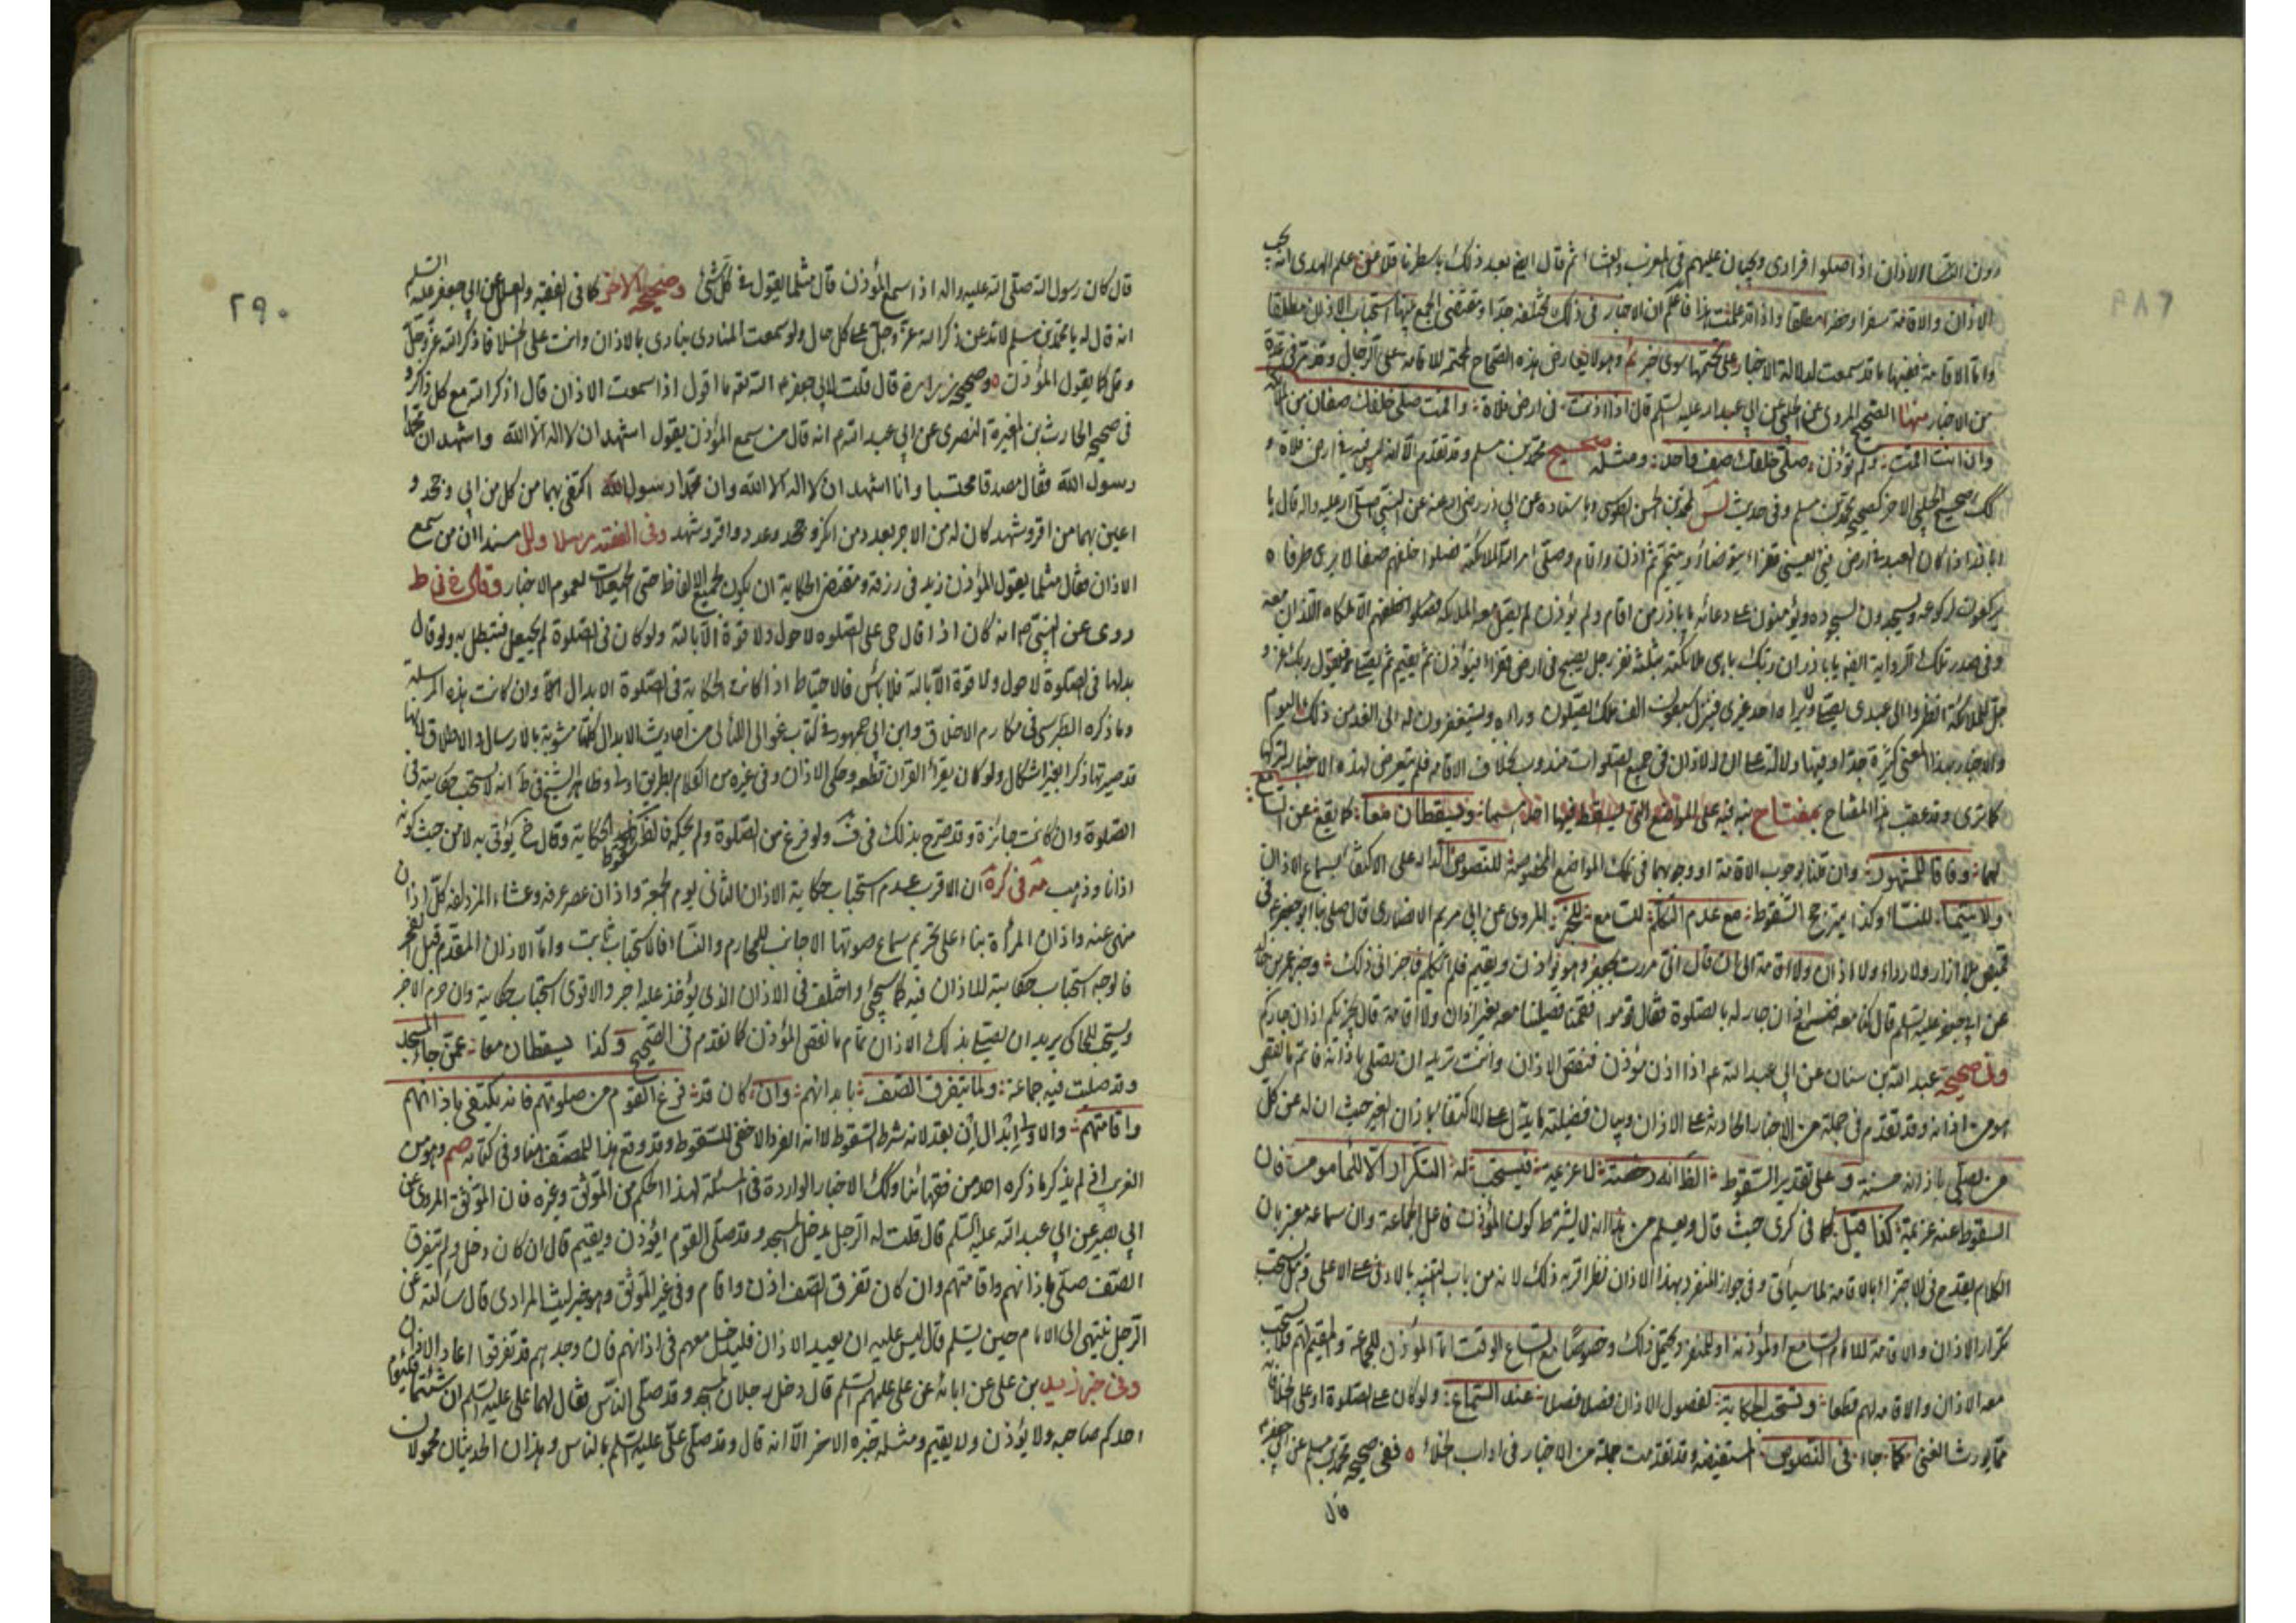 دون النساء الاذان اذا صلوا فرادى ويجبان عليهم في المغرب والعشاء ثم قال ايضا بعد ذلك باسطر علم الهدى انه يجب
الاذان والاقامة سفرا وحضرا مطلقا واذا قد علمت هذا فاعلم ان الاخبار في ذلك مختلفة جدا ومقتضى الجمع بينها استحباب الاذان مطلقا
واما الاقامة ففيها ما قد سمعت لدلالة الاخبار على تحتمها سوى خبر وهو لا يعارض هذه الصحاح المحتمة للاقامة على الرجال وقد ترى في عدة
من الاخبار منها الصحيح المروي عن الحلبي عن ابي عبد الله عليه السلم قال اذا اذنت في ارض فلاة واقمت صلى خلفك صفان من الملائكة
وان انت اقمت ولم تؤذن صلى خلفك صف واحد ومثله صحيح محمد بن مسلم وقد تقدم الا انه ليس فيه في ارض فلاة و
كك صحيح الحلبي الاخر كصحيح محمد بن مسلم وفي حديث لمحمد بن الحسن الطوسي وباسناده عن ابي ذر رضي الله عنه عن النبي صلى الله عليه واله قال يا
اباذر اذا كان العبد في ارض قي يعني قفراء فتوضأ او تيمم ثم اذن واقام وصلى امر الله الملائكة فصلوا خلفه صفا لا يرى طرفاه
يركعون لركوعه ويسجدون لسجوده ويؤمنون على دعائه يا باذر من اقام ولم يؤذن لم يصل معه الملائكة الا ملكاه اللذان معه
وفي صدر تلك الرواية ايضا يا باذر ان ربك يباهي ملائكته بثلثة نفر رجل يصبح في ارض قفراء فيؤذن ثم يقيم ثم يصلي فيقول ربك عز و
جل للملائكة انظروا الى عبدي يصلي ولا يراه احد غيري فينزل سبعون الف ملك يصلون وراءه ويستغفرون له الى الغد من ذلك اليوم
والاخبار بهذا المعنى كثيرة جدا وفيها دلالة على ان الاذان في جميع الصلوات مندوب بخلاف الاقامة فلم يتعرض لهذه الاخبار
كما ترى وقد عقب هذا المفتاح بمفتاح بين فيه على المواضع التي يسقط فيها احدهما ويسقطان معا كما يقع عن السامع
لهما وفاقا للمشهور وان قلنا بوجوب الاقامة او وجوبهما في تلك المواضع المخصوصة للنصوص الدالة على الاكتفاء بسماع الاذان
ولا سيما للنساء وكذا يترجح السقوط مع عدم التكلم للسامع للخبر المروي عن ابي مريم الانصاري قال صلى بنا ابو جعفر في
قميص بلا ازار ولا رداء ولا اذان ولا اقامة الى ان قال اني مررت بجعفر وهو يؤذن ويقيم فلم اتكلم فاجزاني ذلك وخبر عمرو بن خالد
عن ابي جعفر عليه السلم قال كنا معه فسمع اذان جار له بالصلوة فقال قوموا فقمنا فصلينا معه بغير اذان ولا اقامة قال يجزيكم اذان جاركم
وفي صحيحة عبد الله بن سنان عن ابي عبد الله ع اذا اذن مؤذن فنقص الاذان وانت تريد ان تصلي باذانه فاتم ما نقص
هو من اذانه وقد تقدم في جملة من الاخبار الحاثة على الاذان وبيان فضيلته ما يدل على الاكتفاء باذان الغير حيث ان له من كل
من يصلي باذانه حسنة وعلى تقدير السقوط الظ انه رخصة لا عزيمة فيستحب له التكرار الا للمأموم فان
السقوط عنه عزيمة كذا قيل كما في كرى حيث قال ويعلم من هذا انه لا يشترط كون المؤذن فاعل الجماعة وان سماعه معتبر بان
الكلام يقدح في الاجتزاء بالاقامة لما سيأتي وفي جواز المنفرد بهذا الاذان نظر اقربه ذلك لانه من باب التنبيه بالادنى على الاعلى وهل يستحب
تكرار الاذان والاقامة للامام السامع او لمؤذنه او للمنفرد يحتمل ذلك وخصوصا مع اتساع الوقت اما المؤذن للجماعة والمقيم لهم فلا يستحب
معه الاذان والاقامة لهم قطعا وتستحب الحكاية لفصول الاذان فصلا فصلا عند السماع ولو كان على الصلوة او على الخلاء فانه
مما يورث الغنى كما جاء في النصوص المستفيضة وقد تقدمت جملة من الاخبار في اداب الخلاء ففي صحيحة محمد بن مسلم عن ابي جعفر ع
قال
٢٨٩
قال كان رسول الله صلى الله عليه واله اذا سمع المؤذن قال مثل ما يقول في كل شئ وصحيحه الاخر كما في الفقيه والعلل عن ابي جعفر عليه السلم
انه قال له يا محمد بن مسلم لا تدعن ذكر الله عز وجل على كل حال ولو سمعت المنادي ينادي بالاذان وانت على الخلاء فاذكر الله عز وجل
وقل كما يقول المؤذن وصحيح زرارة قال قلت لابي جعفر ع ما اقول اذا سمعت الاذان قال اذكر الله مع كل ذاكر و
في صحيح الحارث بن المغيرة النصري عن ابي عبد الله ع انه قال من سمع المؤذن يقول اشهد ان لا اله الا الله واشهد ان محمدا
رسول الله فقال مصدقا محتسبا وانا اشهد ان لا اله الا الله وان محمدا رسول الله اكتفي بهما من كل من ابى وجحد و
اعين بهما من اقر وشهد كان له من الاجر بعدد من انكر وجحد وعدد من اقر وشهد وفي الفقيه مرسلا ولل مسندا ان من سمع
الاذان فقال مثل ما يقول المؤذن زيد في رزقه ومقتضى الحكاية ان يكون لجميع الالفاظ حتى الحيعلات لعموم الاخبار وقال في ط
روي عن النبي ص انه كان اذا قال حي على الصلوة لا حول ولا قوة الا بالله ولو كان في الصلوة لم يحيعل فتبطل به ولو قال
بدلها في الصلوة لا حول ولا قوة الا بالله فلا بأس فالاحتياط اذا كانت الحكاية في الصلوة الابدال وان كانت هذه المرسلة
وما ذكره الطبرسي في مكارم الاخلاق وابن ابي جمهور في كتاب عوالي اللئالي من احاديث الابدال كلها مشوبة بالارسال والاطلاق لكنها
قد صيرتها ذكرا بغير اشكال ولو كان يقرأ القران قطعه وحكى الاذان وفي غيره من الكلام بطريق اولى وظاهر الشيخ في ط انه لا يستحب حكايته في
الصلوة وان كانت جائزة وقد صرح بذلك في ف ولو فرغ من الصلوة ولم يحكه فالظ سقوط الحكاية وقال خ يؤتى به لا من حيث كونه
اذانا وذهب مة في كرة ان الاقرب عدم استحباب حكاية الاذان الثاني يوم الجمعة واذان عصر عرفه وعشاء المزدلفه كل اذان
منهي عنه واذان المرأة بناء على تحريم سماع صوتها الاجانب للمحارم والنساء فالاستحباب ثابت واما الاذان المقدم قبل الفجر
فالوجه استحباب حكايته للاذان فيه كما سيجئ واختلف في الاذان الذي يؤخذ عليه اجر والاقوى استحباب حكايته وان حرم الاجر
ويستحب للحاكي يريد ان يصلي بذلك الاذان تمام ما نقص المؤذن كما تقدم في الصحيح وكذا يسقطان معا عمن جاء المسجد
وقد صليت فيه جماعة ولما يتفرق الصف بابدانهم وان كان قد فرغ القوم من صلوتهم فانه يكتفي باذانهم
واقامتهم والاولى ابدال ان بعد لانه شرط السقوط لا انه الفرد الاخفى للسقوط وقد وقع هذا للمصنف هنا وفي كتابه وهو من
الغريب اذ لم يذكر ما ذكره احد من فقهائنا وكك الاخبار الواردة في المسئلة لهذا الحكم من الموثق وغيره فان الموثق المروي عن
ابي بصير عن ابي عبد الله عليه السلم قال قلت له الرجل يدخل المسجد وقد صلى القوم ايؤذن ويقيم قال ان كان دخل ولم يتفرق
الصف صلى باذانهم واقامتهم وان كان تفرق الصف اذن واقام وفي غير الموثق وهو خبر ليث المرادي قال سألته عن
الرجل ينتهي الى الامام حين يسلم قال ليس عليه ان يعيد الاذان فليدخل معهم في اذانهم فان وجدهم قد تفرقوا اعاد الاذان
وفي خبر زيد بن علي عن ابائه عن علي عليهم السلم قال دخل رجلان المسجد وقد صلى الناس فقال لهما علي عليه السلم ان شئتما فليؤم
احدكم صاحبه ولا يؤذن ولا يقيم ومثله خبره الاخر الا انه قال وقد صلى علي عليه السلم بالناس وهذان الحديثان محمولان
٢٩٠